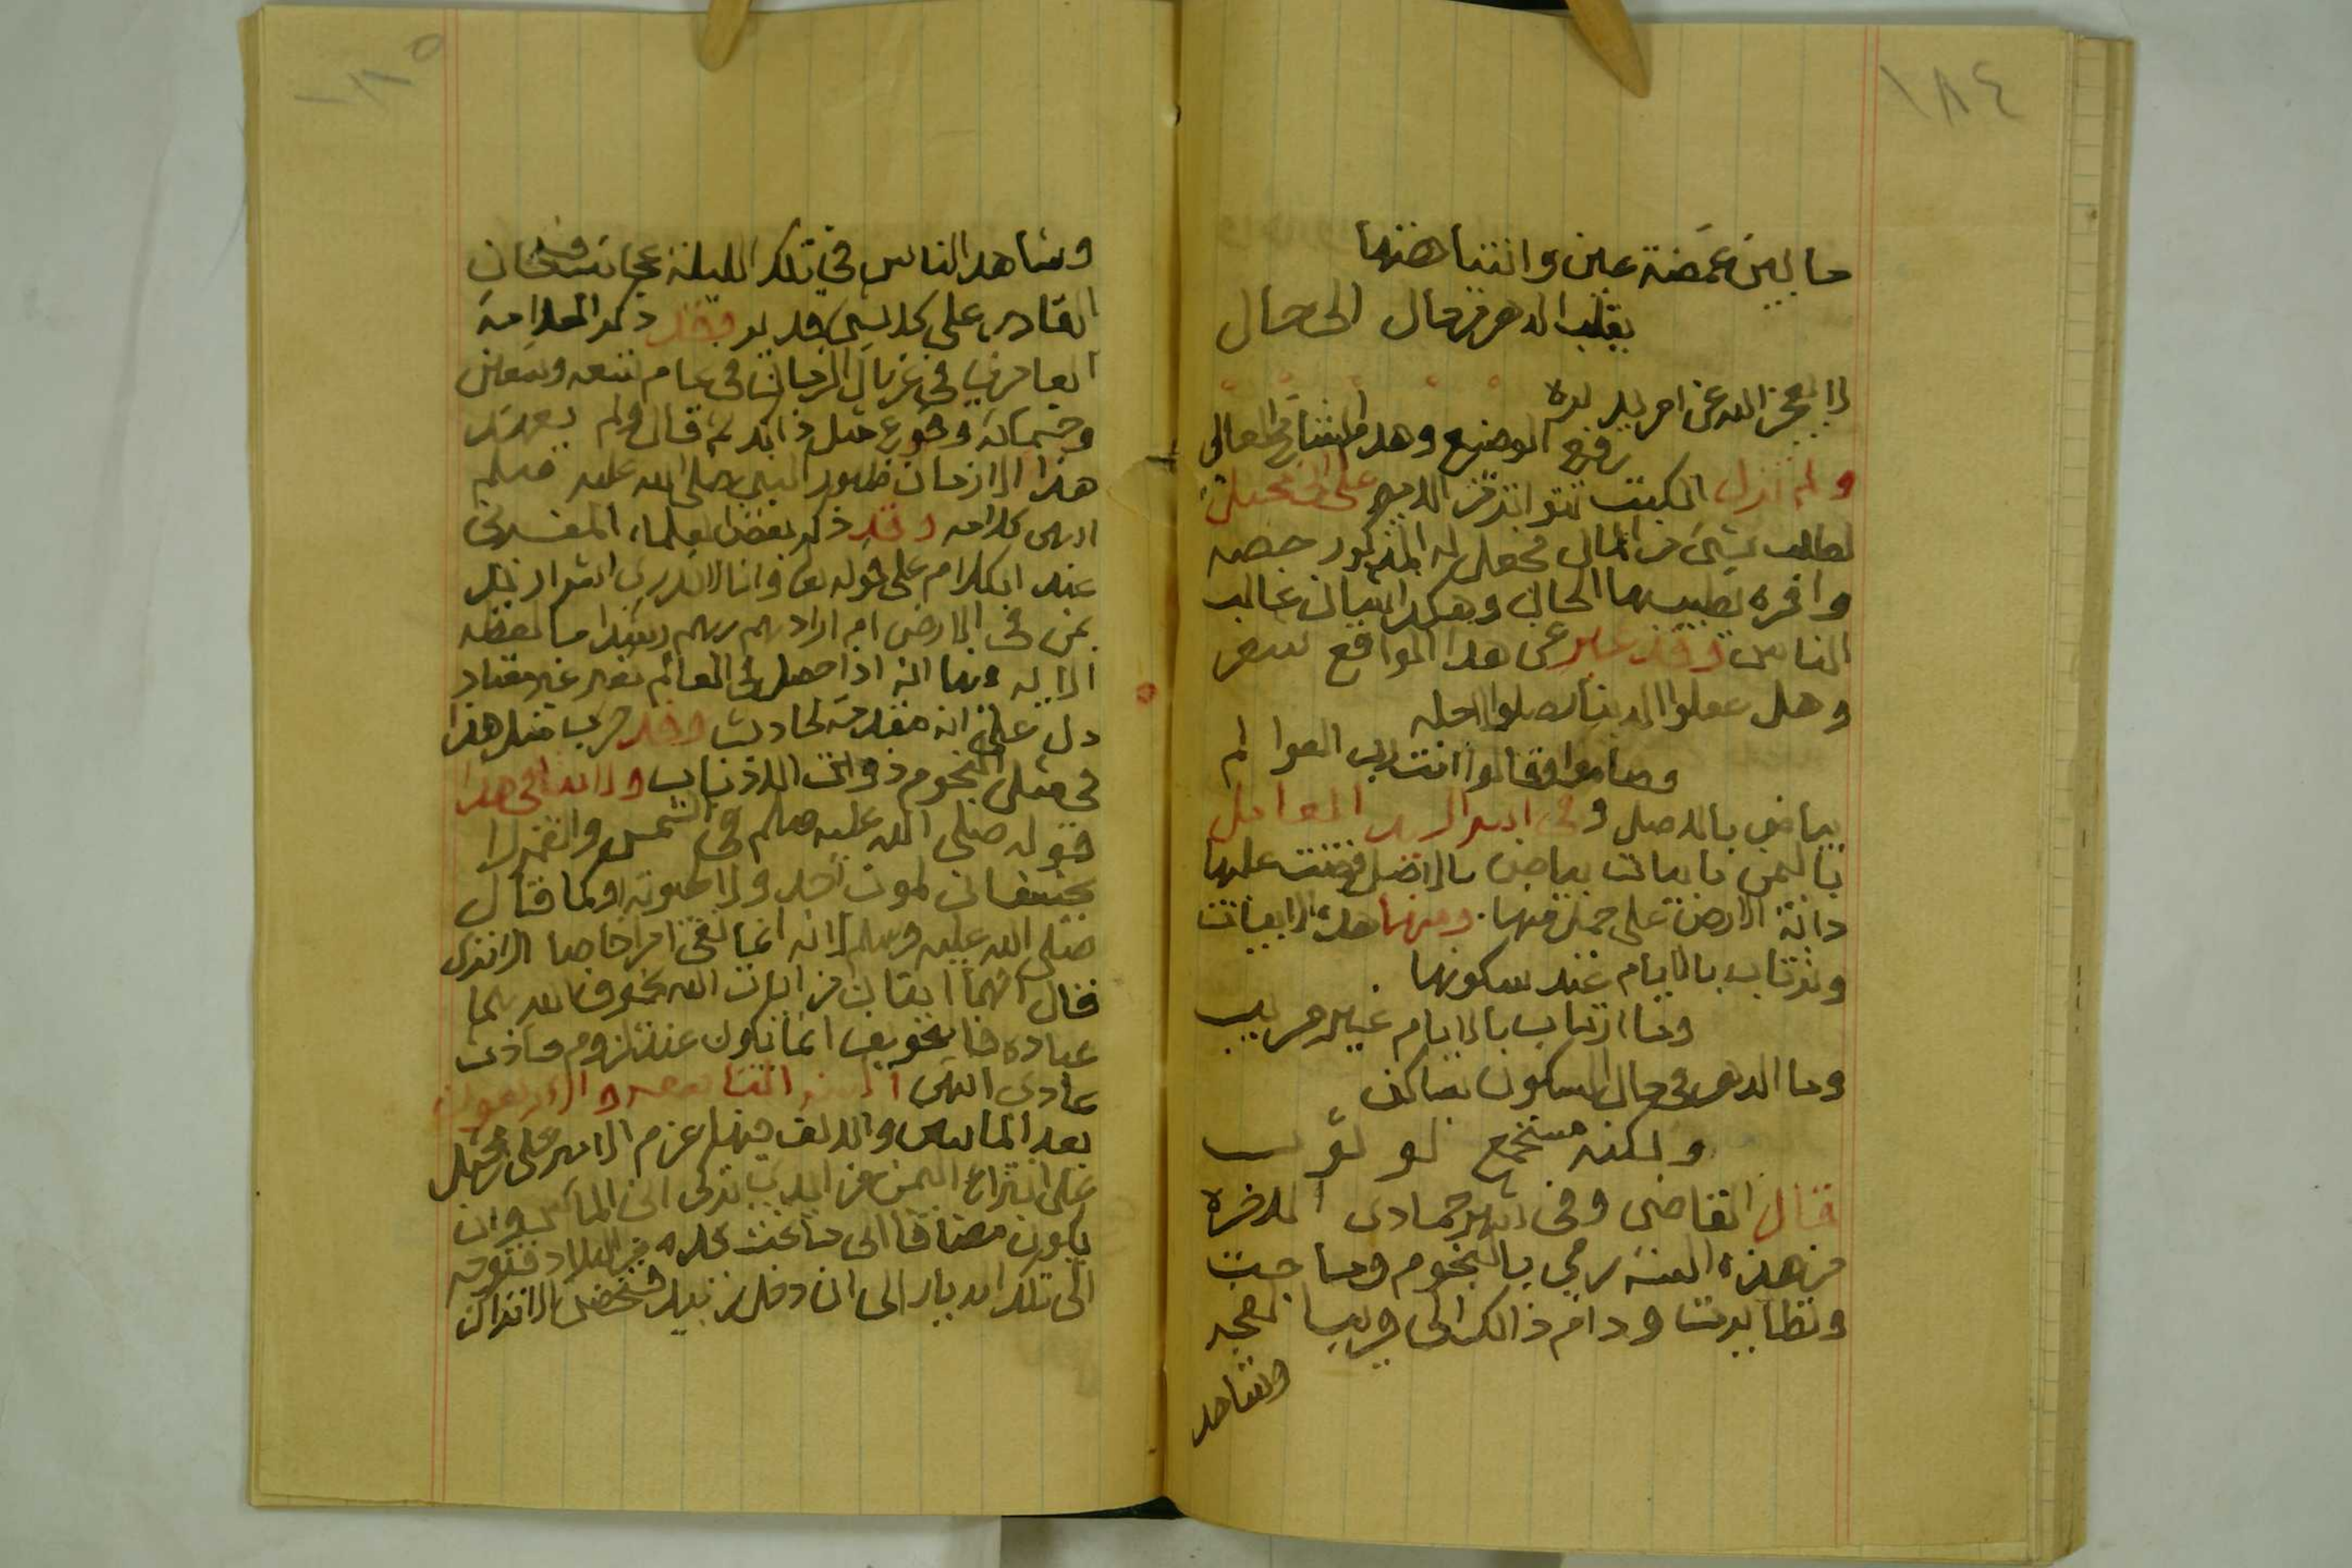 ١٨٤
ما بين غمضة عين وانتباهتها
يقلب الدهر من حال الى حال
لا يعجز الله عن امر يريده
رفع الوضيع وهدم الشامخ العالي
ولم تزل الكتب تتواتر من الامير على
لطلب شيء من المال فجعل له المذكور حصه
وافره تطيب بها الحال وهكذا غالب
الناس وقد عبر عن هذا الواقع لسعر
وهل عملوا الا لدينا لاجله
وصاموا وقالوا انت رب العوالم
بياض بالاصل وفي
باليمن بياض بالاصل عليها
الارض على حمل فيها. ومنها هذه الابيات
وترتاب بالايام عند سكونها
وما ارتاب بالايام غير مريب
وما الدهر في حال السكون بساكن
ولكنه مستجمع لوثوب
قال القاضي وفي شهر جمادى الاخره
من هذه السنه رمي بالنجوم وماجت
وتطايرت ودام ذالك الى قريب الفجر
وشاهد
١٨٥
وشاهد الناس في تلك الليلة عجائب فسبحان
القادر على كل شيء قدير وقد ذكر العلامة
العامري في غربال الزمان في عام تسعه وتسعين
وخمسمائة وقوع مثل ذالك ثم قال ولم يعهد
هذا الا زمان ظهور النبي صلى الله عليه وسلم
انتهى كلامه وقد ذكر بعض العلماء المفسرين
عند الكلام على قوله تعا وانا لا ندري اشر اريد
بمن في الارض ام اراد بهم ربهم رشدا ما لفظه
الايه وبها انه اذا حصل في العالم تغير غير معتاد
دل على انه مقدمة لحادث وقد جرب مثل هذا
في مثل النجوم ذوات الاذناب ولا ينافي هذا
قوله صلى الله عليه وسلم في الشمس والقمر لا
يخسفان لموت احد ولا لحيوته او كما قال
صلى الله عليه وسلم لانه انما نفى امرا خاصا الا ترى
قال انهما ايتان من ايات الله يخوف الله بهما
عباده فالتخويف انما يكون عند لزوم حادث
عادي انتهى السنه التاسعه والاربعون
بعد المأتين والالف فيها عزم الامير على
على انتزاع اليمن من الى الماس وان
يكون مضافا الى ما تحت يده من البلاد فتوجه
الى تلك الديار الى ان دخل زبيد الاتراك